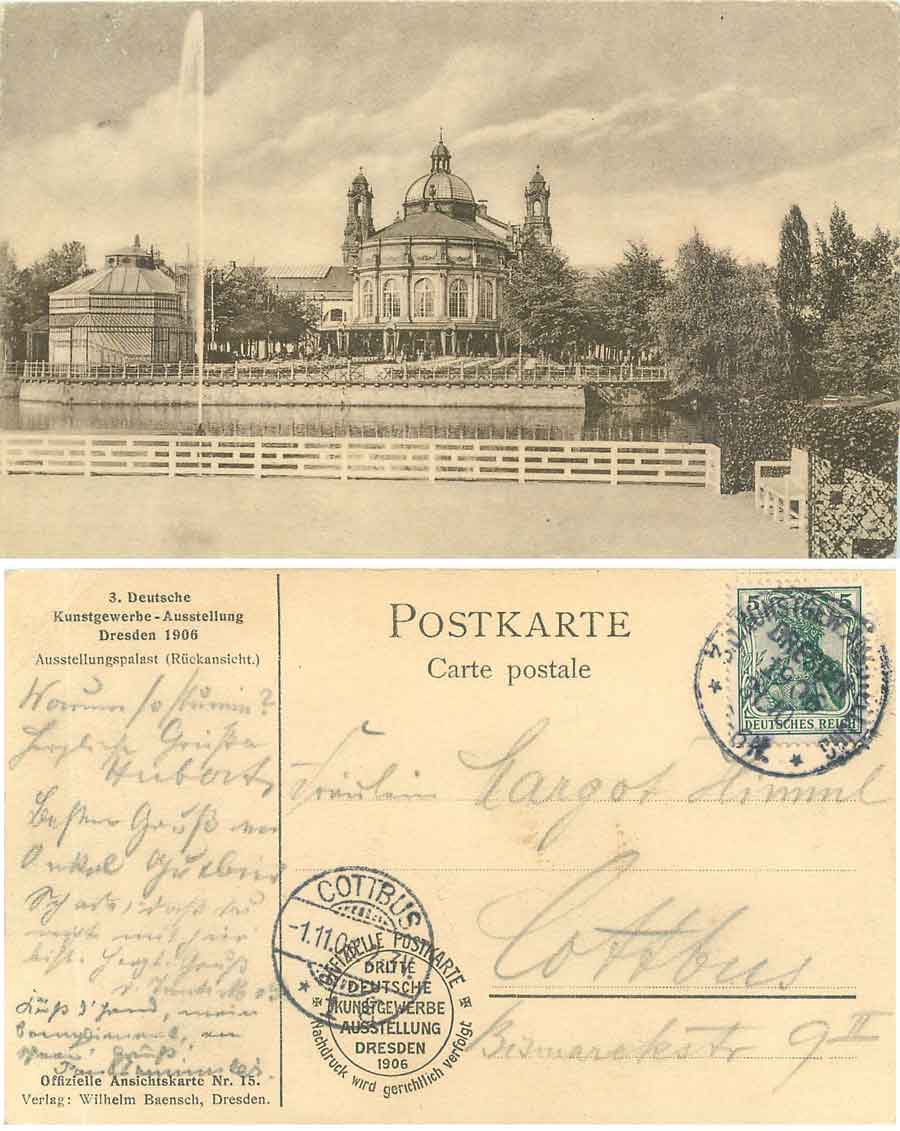 3. Deutsche
Kunstgewerbe-Ausstellung
Dresden 1906
Ausstellungspalast (Rückansicht.)
Warum so stumm?
Herzliche Grüße
Hubert
Besten Gruß von
Onkel
Schade, daß du
nicht mit hier
bist. Herzl. Gruß
Küß d'Hand, mein
Gruß
Offizielle Ansichtskarte Nr. 15.
Verlag: Wilhelm Baensch, Dresden.
POSTKARTE
Carte postale
5 5
DEUTSCHES REICH
DRESDEN
Fräulein Margot Himml
Cottbus
Bismarckstr 9 II
COTTBUS
-1.11.0
OFFIZIELLE POSTKARTE
DRITTE
DEUTSCHE
KUNSTGEWERBE
AUSSTELLUNG
DRESDEN
1906
Nachdruck wird gerichtlich verfolgt